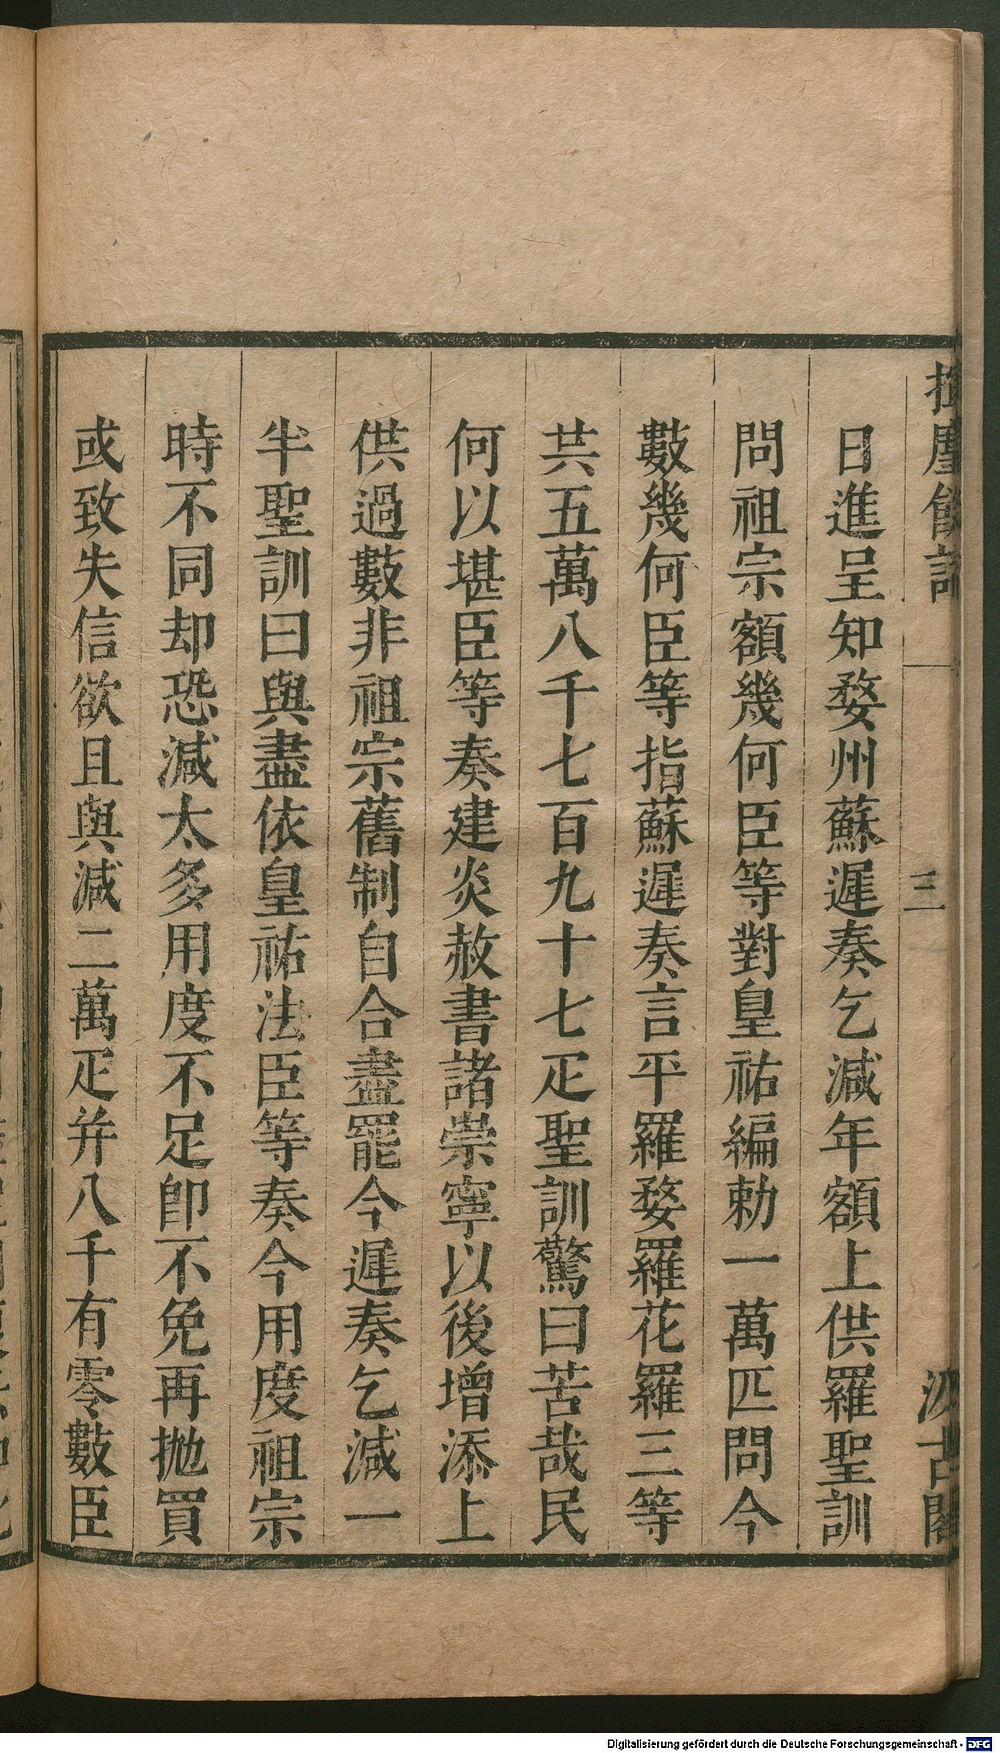 揮麈餘話
三
汲古閣
日進呈知婺州蘇遲奏乞減年額上供羅聖訓
問祖宗額幾何臣等對皇祐編勅一萬匹問今
數幾何臣等指蘇遲奏言平羅婺羅花羅三等
共五萬八千七百九十七疋聖訓驚曰苦哉民
何以堪臣等奏建炎赦書諸崇寧以後增添上
供過數非祖宗舊制自合盡罷今遲奏乞減一
半聖訓曰與盡依皇祐法臣等奏今用度祖宗
時不同却恐減太多用度不足卽不免再拋買
或致失信欲且與減二萬疋并八千有零數臣
Digitalisierung gefördert durch die Deutsche Forschungsgemeinschaft - DFG